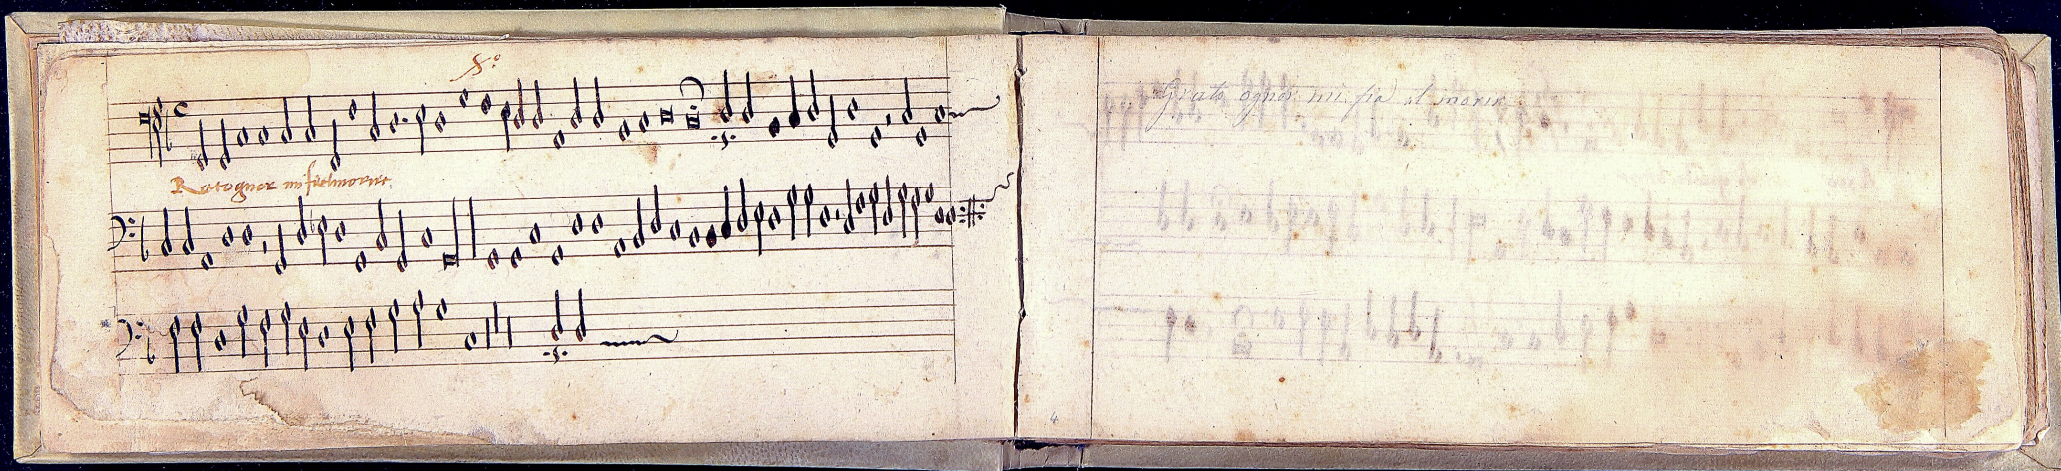 S.º
Rato gnor mi fiel morire
.S.
.S.
Grato ognor mi fia il morir
4